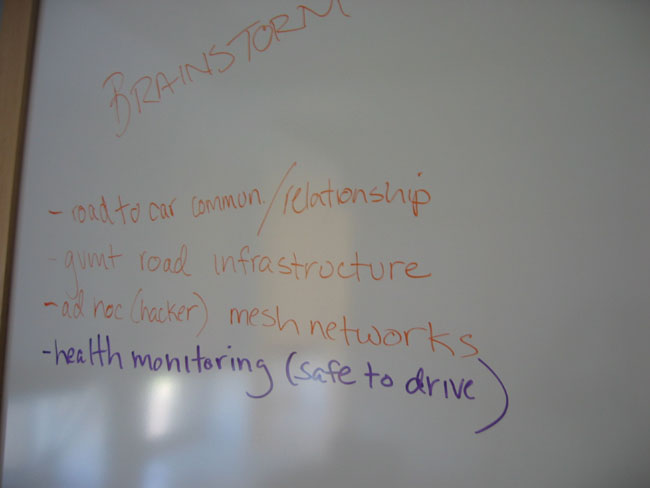 BRAINSTORM
- road to car commun./relationship
- gvmt road infrastructure
- ad hoc (hacker) mesh networks
- health monitoring (safe to drive)